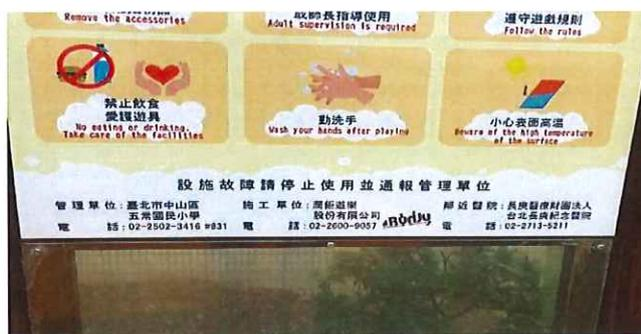 Remove the accessories
取師長指導使用
Adult supervision is required
遵守遊戲規則
Follow the rules
禁止飲食
愛護遊具
No eating or drinking.
Take care of the facilities
勤洗手
Wash your hands after playing
小心表面高溫
Beware of the high temperature
of the surface
設施故障請停止使用並通報管理單位
管理單位:臺北市中山區
五常國民小學
電話:02-2502-3416 #831
施工單位:潤鉅遊樂
股份有限公司
電話:02-2600-9057
鄰近醫院:長庚醫療財團法人
台北長庚紀念醫院
電話:02-2713-5211